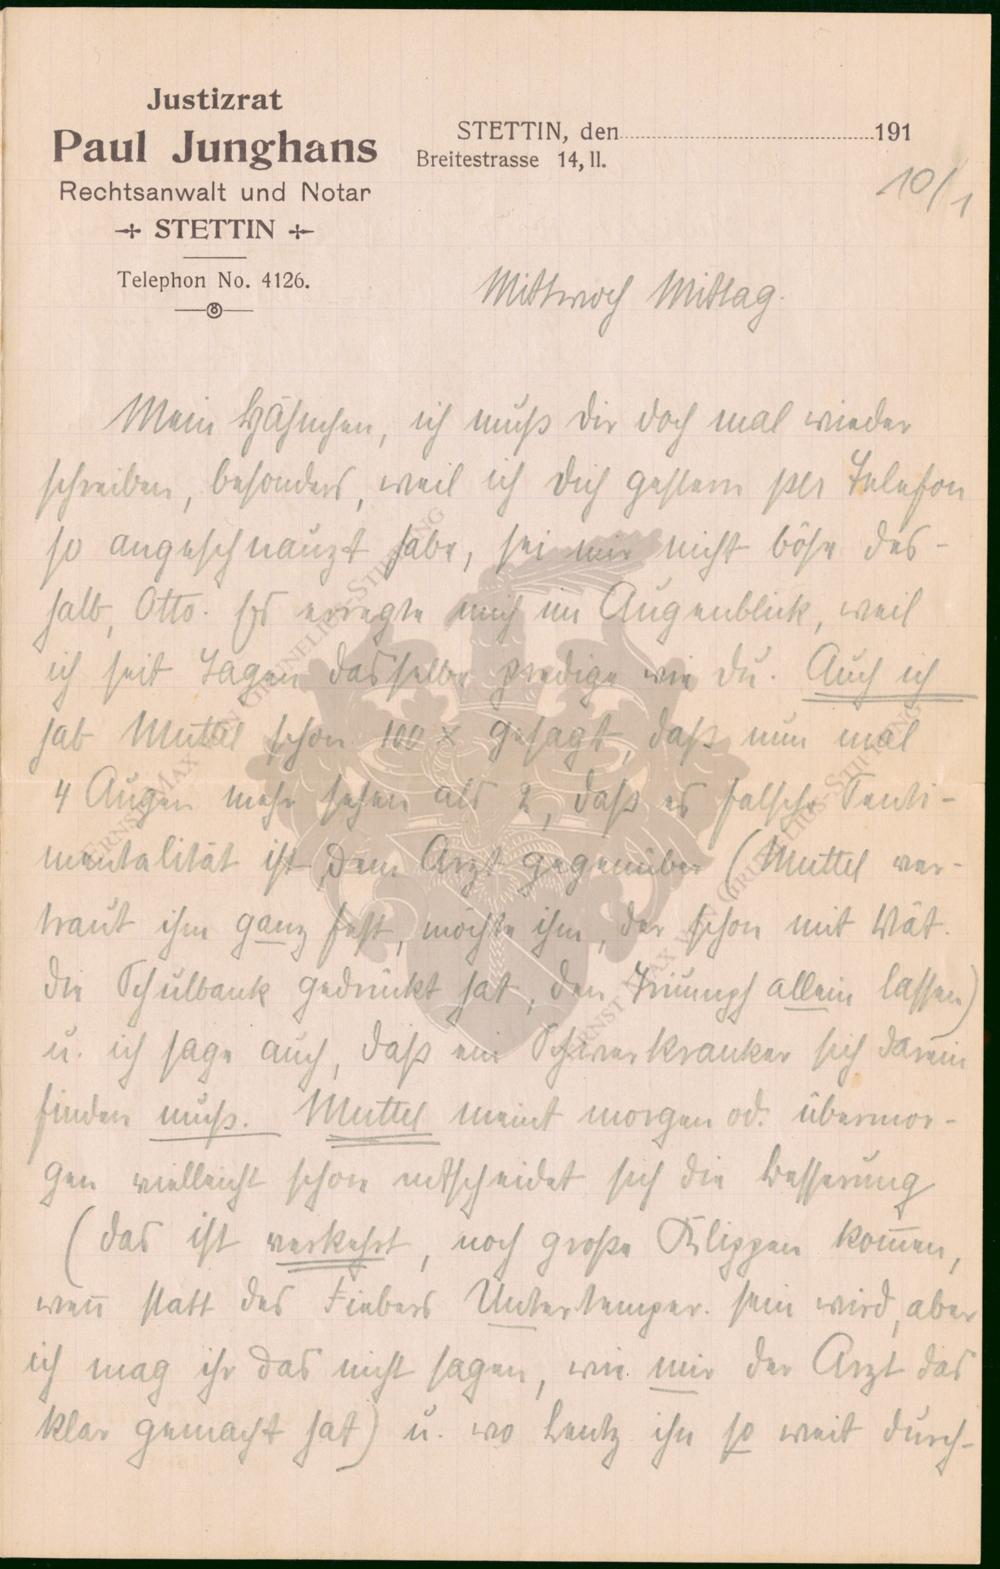 Justizrat
Paul Junghans
Rechtsanwalt und Notar
STETTIN
Telephon No. 4126.
STETTIN, den 191
Breitestrasse 14, II.
10/1
Mittwoch Mittag.
Mein Hähnchen, ich muß Dir doch mal wieder
schreiben, besonders, weil ich Dich gestern per Telefon
so angeschnauzt habe, sei mir nicht böse des-
halb, Otto. Es erregte mich im Augenblick, weil
ich seit Tagen dasselbe predige wie Du. Auch ich
hab Muttel schon 100 x gesagt, daß nun mal
4 Augen mehr sehen als 2, daß es falsche Senti-
mentalität ist, dem Arzt gegenüber (Muttel ver-
traut ihm ganz fest, möchte ihm, der schon mit Vät.
die Schulbank gedrückt hat, den Triumph allein lassen)
u. ich sage auch, daß ein Schwerkranker sich darein
finden muß. Muttel meint morgen od. übermor-
gen vielleicht schon entscheidet sich die Besserung
(das ist verkehrt, noch große Klippen kom̅en,
wen̅ statt des Fiebers Untertemper. sein wird, aber
ich mag ihr das nicht sagen, wie mir der Arzt das
klar gemacht hat) u. wo Lentz ihn so weit durch-
ERNST MAX V. GRÜNELIUS-STIFTUNG
ERNST MAX V. GRUNELIUS-STIFTUNG